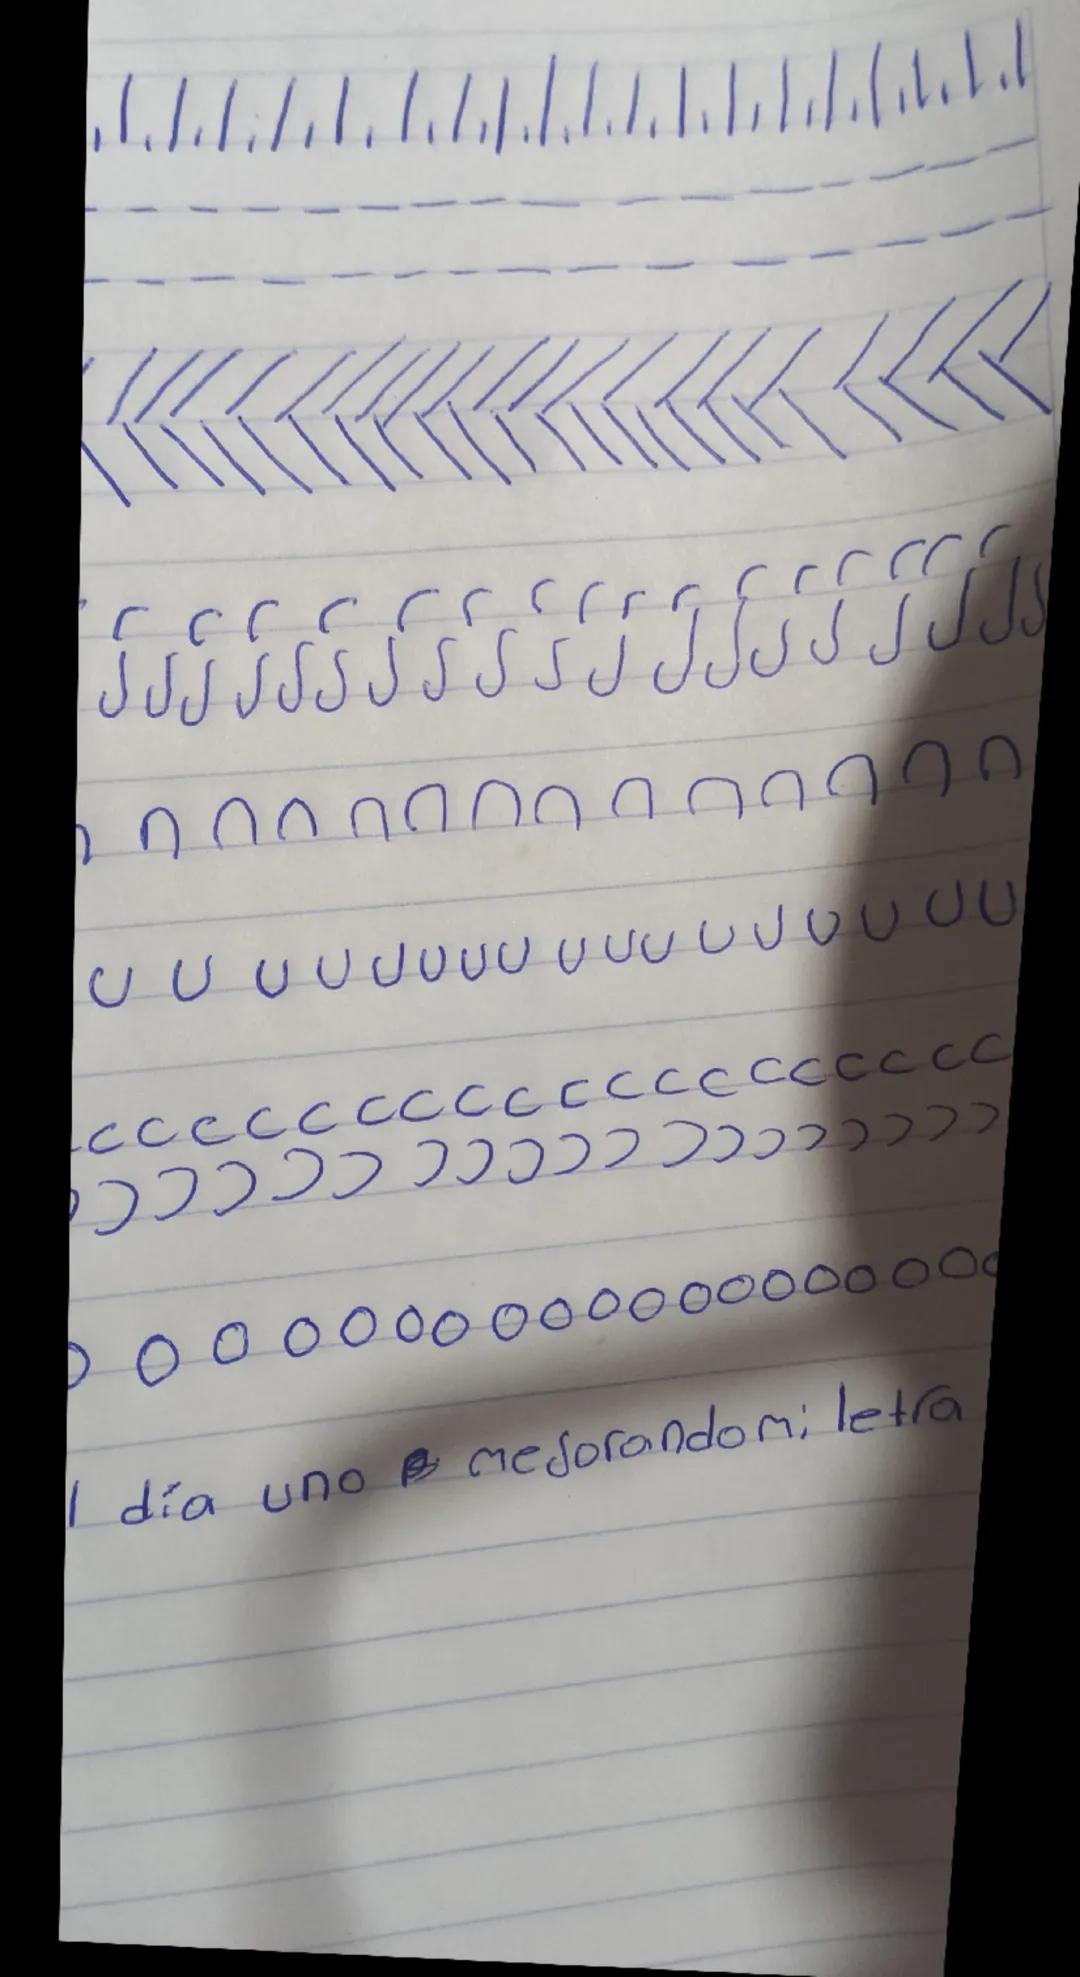 l día uno mejorando mi letra